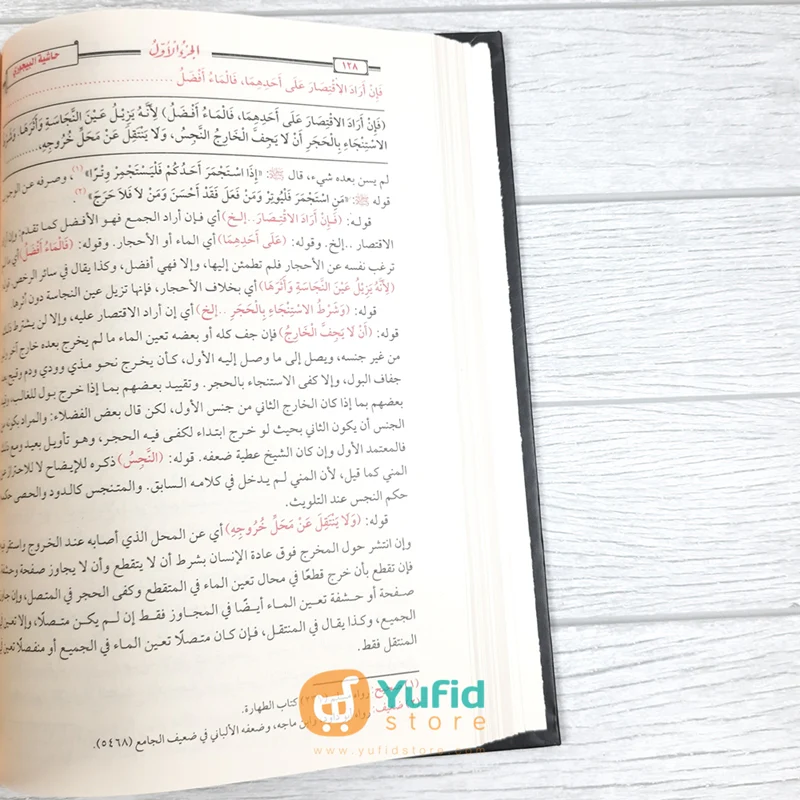 ١٢٨ الجزء الأول حاشية البيجوري
فَإِنْ أَرَادَ الاقْتِصَارَ عَلَى أَحَدِهِمَا، فَالْمَاءُ أَفْضَلُ
(فَإِنْ أَرَادَ الاقْتِصَارَ عَلَى أَحَدِهِمَا، فَالْمَاءُ أَفْضَلُ) لِأَنَّهُ يَزِيْلُ عَيْنَ النَّجَاسَةِ وَأَثَرَهَا، وَشَرْطُ
الاسْتِنْجَاءِ بِالْحَجَرِ أَنْ لَا يَجِفَّ الْخَارِجُ النَّجِسُ، وَلَا يَنْتَقِلَ عَنْ مَحَلِّ خُرُوجِهِ،
لم يسن بعده شيء، قال ﷺ: «إِذَا اسْتَجْمَرَ أَحَدُكُمْ فَلْيَسْتَجْمِرْ وِتْرًا» (١)، وصرفه عن الوجوب
قوله ﷺ: «مَنِ اسْتَجْمَرَ فَلْيُوتِرْ وَمَنْ فَعَلَ فَقَدْ أَحْسَنَ وَمَنْ لَا فَلَا حَرَجَ» (٢).
قوله: (فَإِنْ أَرَادَ الاقْتِصَارَ ..إلخ) أي فإن أراد الجمع فهو الأفضل كما تقدم: وإن أراد
الاقتصار ..إلخ. وقوله: (عَلَى أَحَدِهِمَا) أي الماء أو الأحجار. وقوله: (فَالْمَاءُ أَفْضَلُ) أي ما لم
ترغب نفسه عن الأحجار فلم تطمئن إليها، وإلا فهي أفضل، وكذا يقال في سائر الرخص. قوله:
(لِأَنَّهُ يَزِيْلُ عَيْنَ النَّجَاسَةِ وَأَثَرَهَا) أي بخلاف الأحجار، فإنها تزيل عين النجاسة دون أثرها.
قوله: (وَشَرْطُ الاسْتِنْجَاءِ بِالْحَجَرِ ..إلخ) أي إن أراد الاقتصار عليه، وإلا لن يشترط ذلك.
قوله: (أَنْ لَا يَجِفَّ الْخَارِجُ) فإن جف كله أو بعضه تعين الماء ما لم يخرج بعده خارج آخر ولو
من غير جنسه، ويصل إلى ما وصل إليه الأول، كأن يخرج نحو مذي وودي ودم وقيح بعد
جفاف البول، وإلا كفى الاستنجاء بالحجر. وتقييد بعضهم بما إذا خرج بول للغالب،
بعضهم بما إذا كان الخارج الثاني من جنس الأول، لكن قال بعض الفضلاء: والمراد بكونه من
الجنس أن يكون الثاني بحيث لو خرج ابتداء لكفى فيه الحجر، وهو تأويل بعيد ومع ذلك
فالمعتمد الأول وإن كان الشيخ عطية ضعفه. قوله: (النَّجِسُ) ذكره للإيضاح لا للاحتراز عن
المني كما قيل، لأن المني لم يدخل في كلامه السابق. والمتنجس كالدود والحصى حكمه
حكم النجس عند التلويث.
قوله: (وَلَا يَنْتَقِلَ عَنْ مَحَلِّ خُرُوجِهِ) أي عن المحل الذي أصابه عند الخروج واستقر فيه
وإن انتشر حول المخرج فوق عادة الإنسان بشرط أن لا يتقطع وأن لا يجاوز صفحة وحشفة
فإن تقطع بأن خرج قطعًا في محال تعين الماء في المتقطع وكفى الحجر في المتصل، وإن جاوز
صفحة أو حشفة تعين الماء أيضًا في المجاوز فقط إن لم يكن متصلًا، وإلا تعين في
الجميع، وكذا يقال في المنتقل، فإن كان متصلًا تعين الماء في الجميع أو منفصلًا تعين في
المنتقل فقط.
(١) رواه كتاب الطهارة.
ضعيف: رواه أبو داود وابن ماجه، وضعفه الألباني في ضعيف الجامع (٥٤٦٨).
Yufid
store
www.yufidstore.com